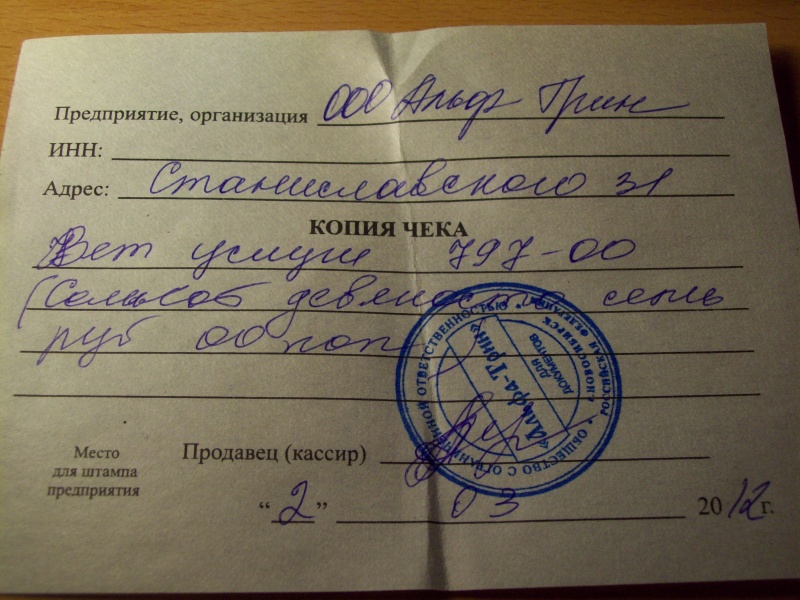 Предприятие, организация ООО Альфа Грин
ИНН:
Адрес: Станиславского 31
КОПИЯ ЧЕКА
Вет услуги 797-00
(Семьсот девяносто семь
руб 00 коп)
Продавец (кассир)
Место
для штампа
предприятия
"2" 03 2012 г.
ОБЩЕСТВО С ОГРАНИЧЕННОЙ ОТВЕТСТВЕННОСТЬЮ
РОССИЙСКАЯ ФЕДЕРАЦИЯ
г. НОВОСИБИРСК
«Альфа-Грин»
ДЛЯ
ДОКУМЕНТОВ